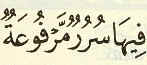 فِيهَا سُرُرٌ مَّرْفُوعَةٌ